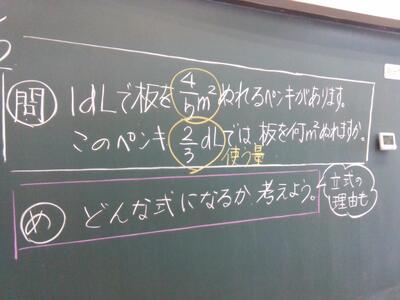 問 1dLで板を4/5m²ぬれるペンキがあります。
このペンキ2/3dLでは、板を何m²ぬれますか。
使う量
め どんな式になるか、考えよう。
立式の
理由も